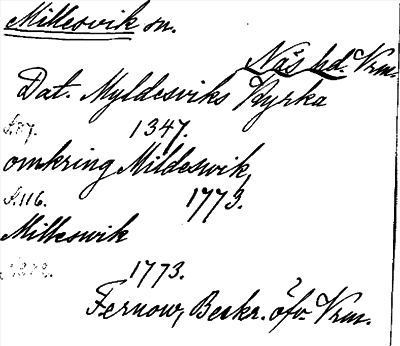 Millesvik sn.
Näs hd. Vrm.
Dat. Myldesviks Kyrka
s.87. 1347.
omkring Mildeswik,
s.116. 1773.
Milleswik
1773.
Fernow, Beskr. öfv. Vrm.